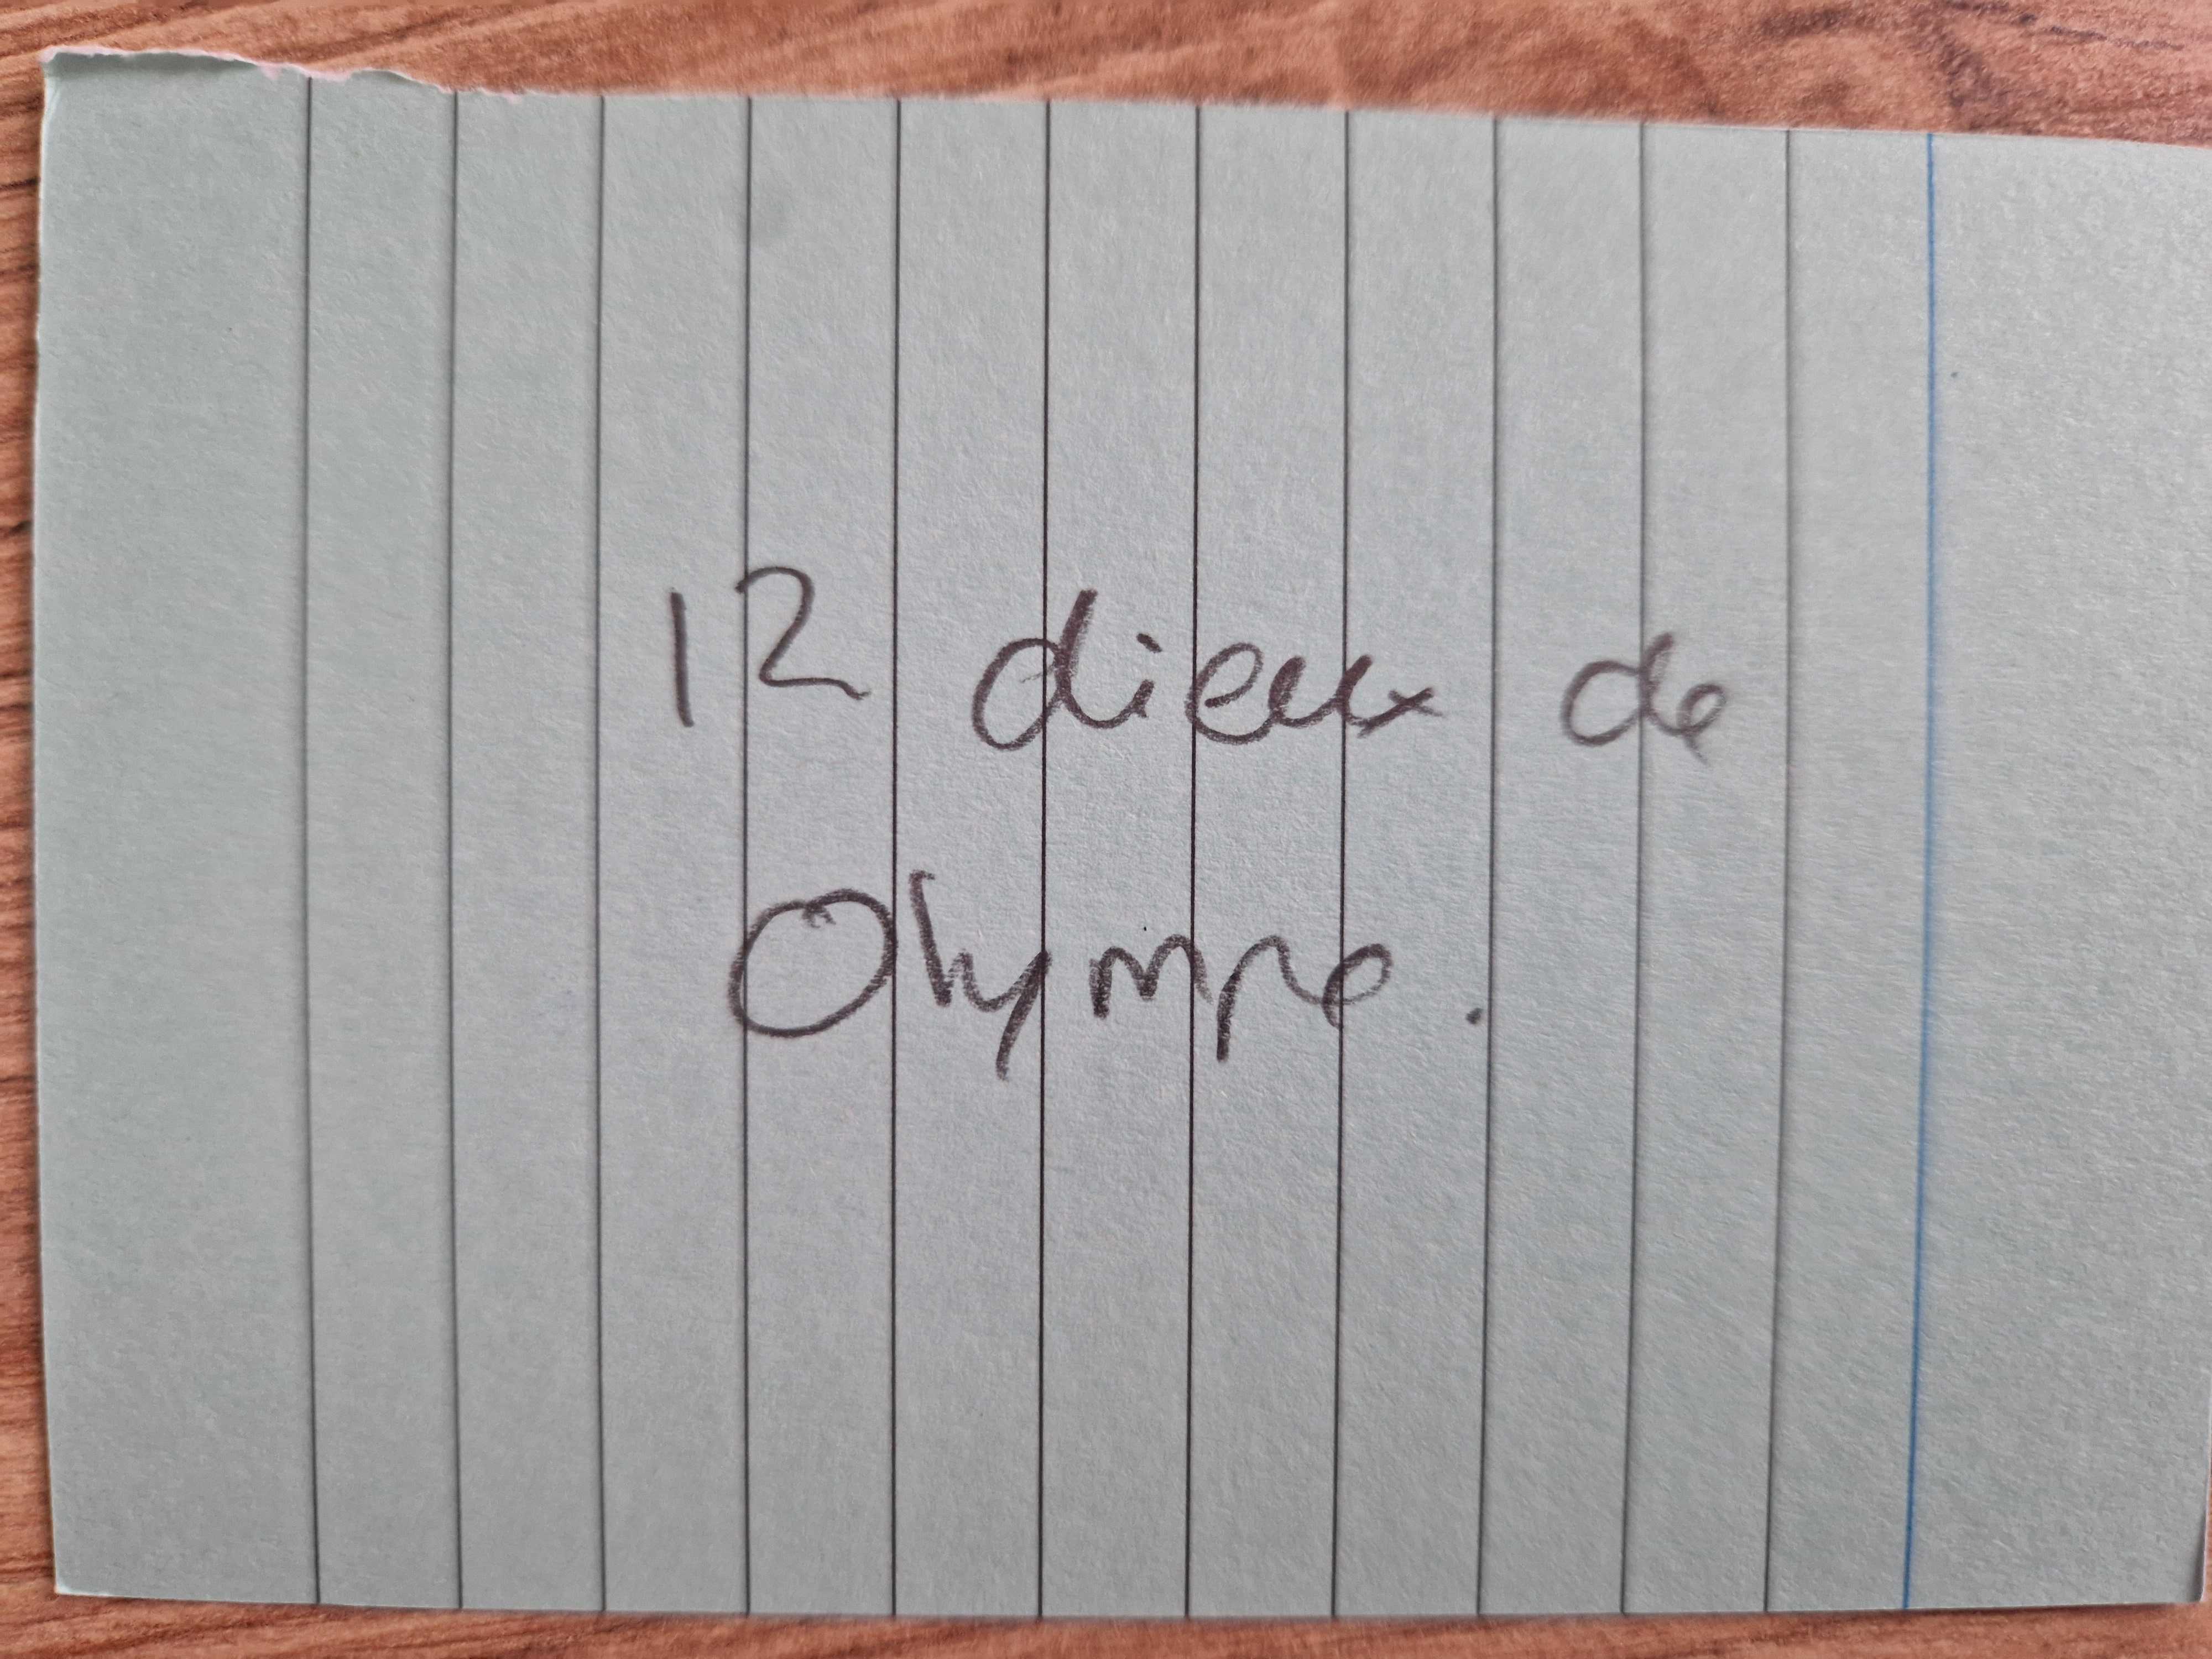 12 dieux de
Olympe.